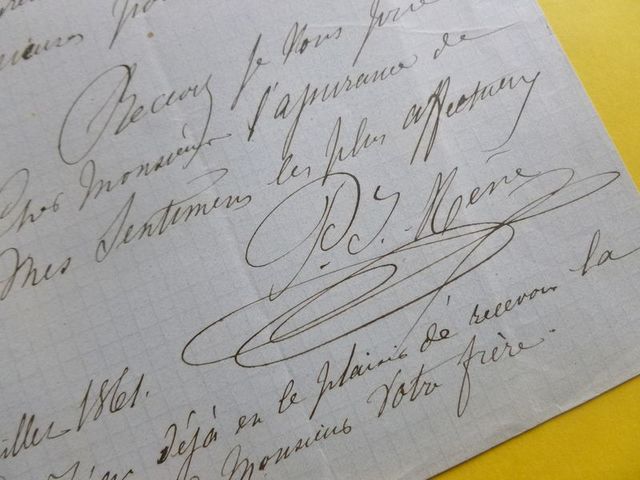 Recevez Je Vous prie
Cher Monsieur l'assurance de
Mes Sentimens les plus affectueux
P. J. Mène
illet 1861.
déjà eu le plaisir de recevoir la
Monsieur Votre frère.